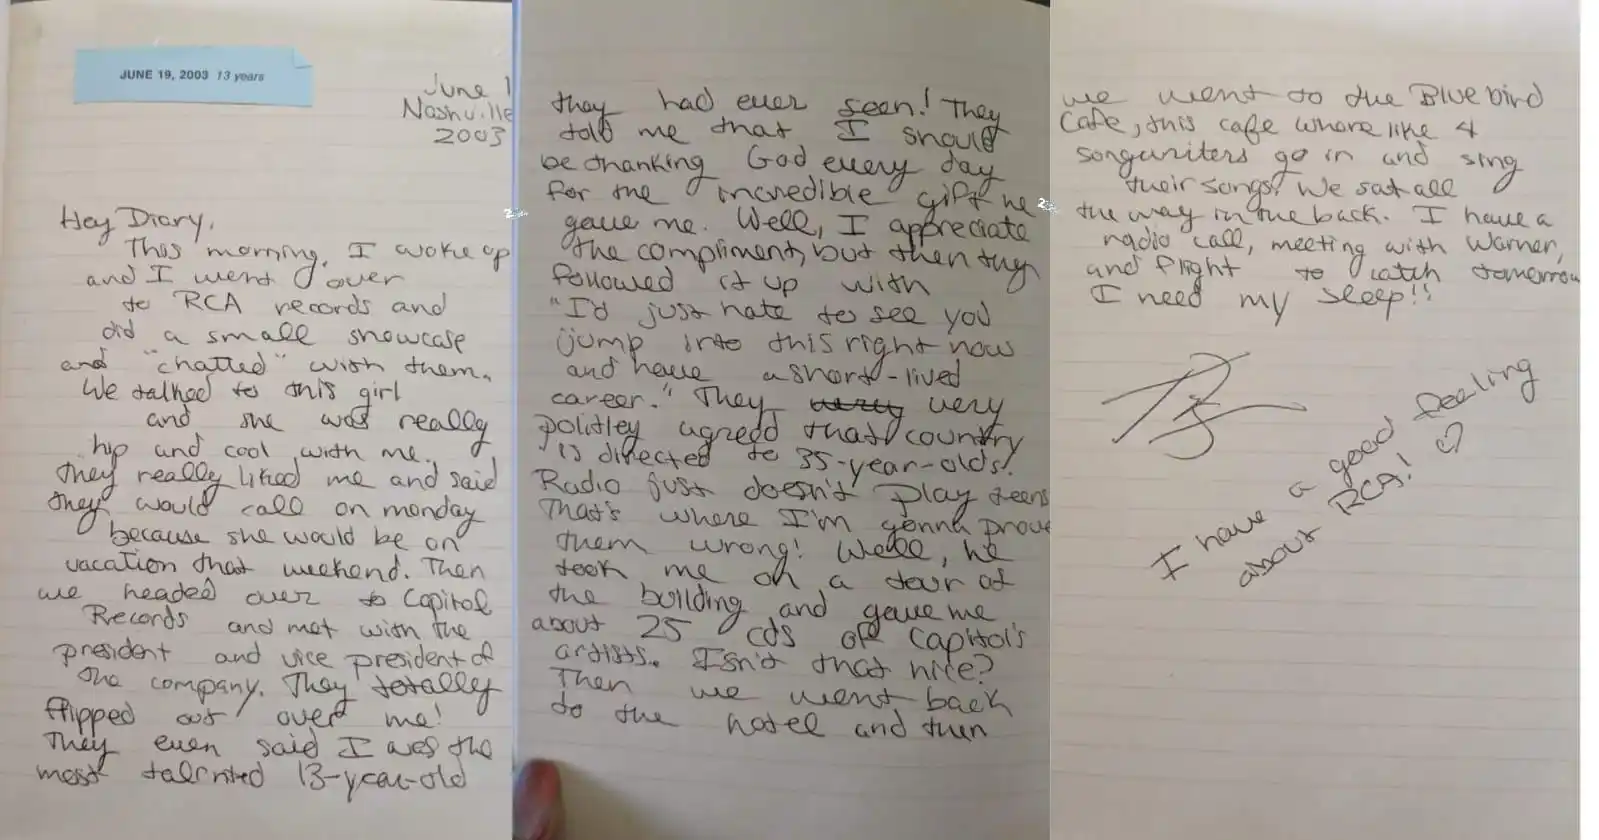 JUNE 19, 2003 13 years
June 1
Nashville
2003
Hey Diary,
This morning, I woke up
and I went over
to RCA records and
did a small showcase
and "chatted" with them.
We talked to this girl
and she was really
hip and cool with me.
they really liked me and said
they would call on monday
because she would be on
vacation that weekend. Then
we headed over to Capitol
Records and met with the
president and vice president of
the company. They totally
flipped out over me!
They even said I was the
most talented 13-year-old
they had ever seen! They
told me that I should
be thanking God every day
for the incredible gift he
gave me. Well, I appreciate
the compliment, but then they
followed it up with
"I'd just hate to see you
jump into this right now
and have a short-lived
career." They very very
politley agreed that country
is directed to 35-year-olds.
Radio just doesn't play teens
That's where I'm gonna prove
them wrong! Well, he
took me on a tour of
the building and gave me
about 25 cds of Capitol's
artists. Isn't that nice?
Then we went back
to the hotel and then
we went to the Bluebird
Cafe, this cafe where like 4
songwriters go in and sing
their songs. We sat all
the way in the back. I have a
radio call, meeting with Warner,
and flight to catch tomorrow
I need my sleep!!
I have a good feeling
about RCA!